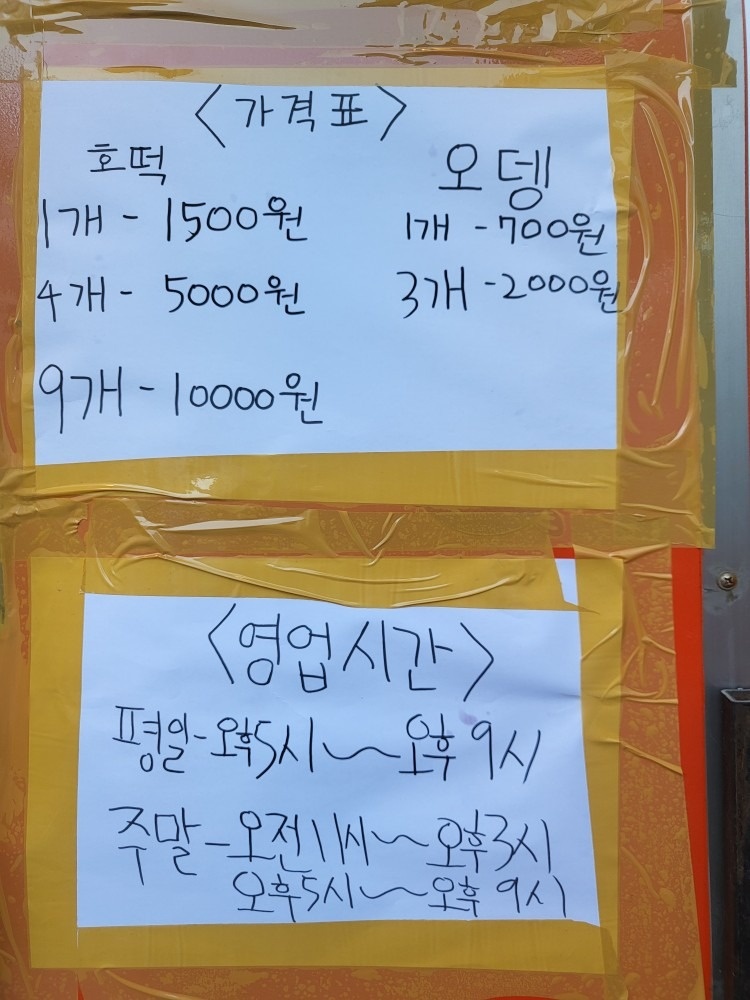 <가격표>
호떡
1개 - 1500원
4개 - 5000원
9개 - 10000원
오뎅
1개 - 700원
3개 - 2000원
<영업시간>
평일 - 오후5시 ~ 오후 9시
주말 - 오전11시 ~ 오후3시
오후5시 ~ 오후 9시